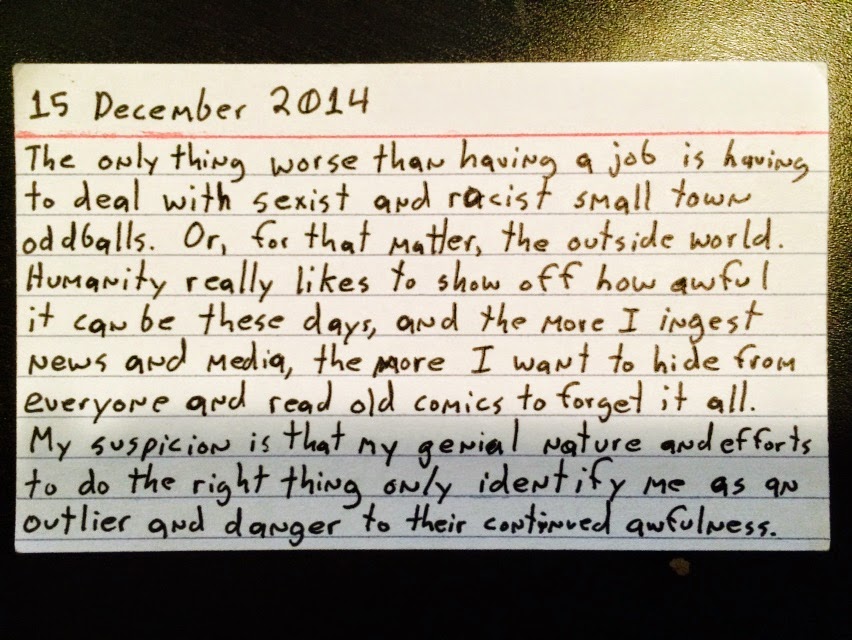 15 December 2014
The only thing worse than having a job is having
to deal with sexist and racist small town
oddballs. Or, for that matter, the outside world.
Humanity really likes to show off how awful
it can be these days, and the more I ingest
news and media, the more I want to hide from
everyone and read old comics to forget it all.
My suspicion is that my genial nature and efforts
to do the right thing only identify me as an
outlier and danger to their continued awfulness.